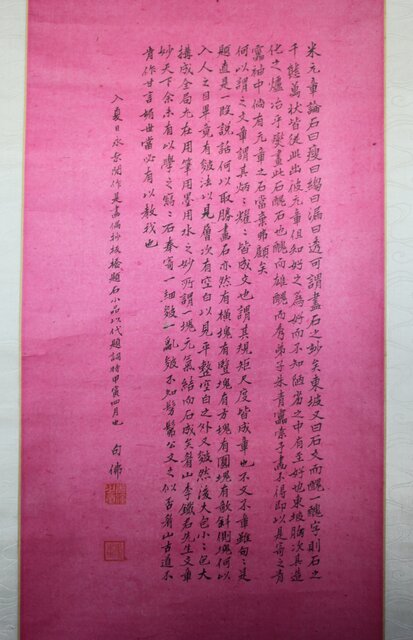 米元章論石曰瘦曰縐曰漏曰透可謂盡石之妙矣東坡又曰石文而醜一醜字則石之
千態萬狀皆從此出彼元章但知好之為好而不知陋劣之中有至好也東坡胸次其造
化之爐冶乎燮畫此石醜石也醜而雄醜而秀弟子朱青雷索予畫不得即以是寄之青
雷袖中倘有元章之石當棄弗顧矣
何以謂之文章謂其炳〻耀〻皆成文也謂其規矩尺度皆成章也不文不章雖句〻是
題直是一段說話何以取勝畫石亦然有橫塊有豎塊有方塊有圓塊有欹斜側塊何以
入人之目畢竟有皴法以見層次有空白以見平整空白之外又皴然後大包小〻包大
構成全局尤在用筆用墨用水之妙所謂一塊元氣結而石成矣眉山李鐵君先生文章
妙天下余未有以學之寫二石奉寄一細皴一亂皴不知髣髴公文之似否眉山古道不
肯作甘言媚世當必有以教我也
入夏日永閒作是畫偶抄板橋題石小品以代題詞時甲寅四月也 句佛